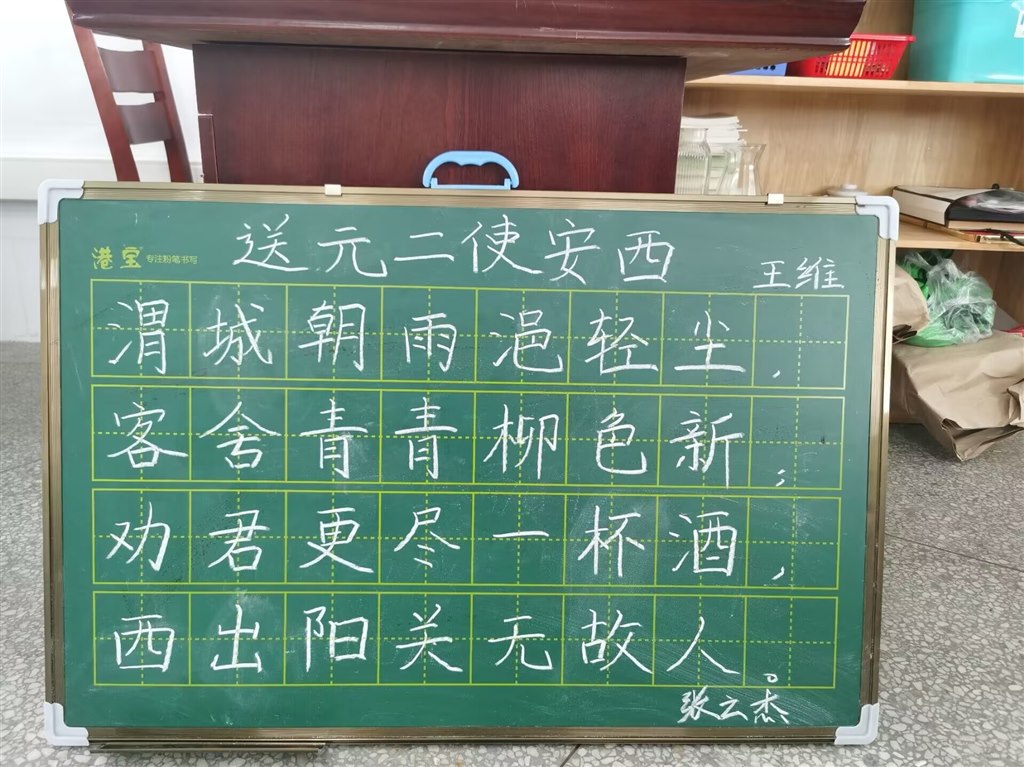 送元二使安西
港宝 专注粉笔书写
王维
渭城朝雨浥轻尘，
客舍青青柳色新；
劝君更尽一杯酒，
西出阳关无故人。
张云杰